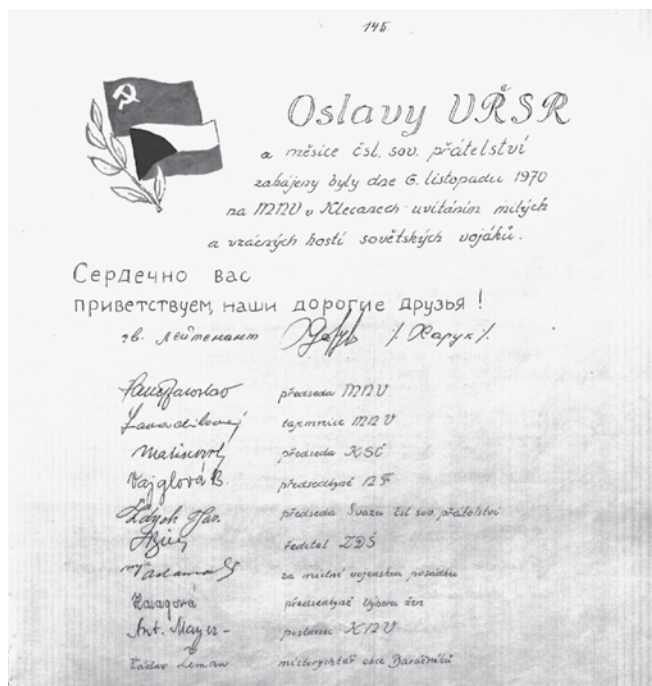 145.
Oslavy VŘSR
a měsíce čsl. sov. přátelství
zahájeny byly dne 6. listopadu 1970
na MNV v Klecanech uvítáním milých
a vzácných hostí sovětských vojáků.
Сердечно вас
приветствуем, наши дорогие друзья!
гв. лейтенант /. Харук /.
předseda MNV
tajemnice MNV
předseda KSČ
Vajglová B. předsedkyně NF
Zdych Jar. předseda Svazu čsl sov přátelství
ředitel ZDŠ
za místní vojenskou posádku
Haragová předsedkyně Výboru žen
Ant. Mayer - poslanec KNV
Václav Zeman místorychtář obce Baráčníků